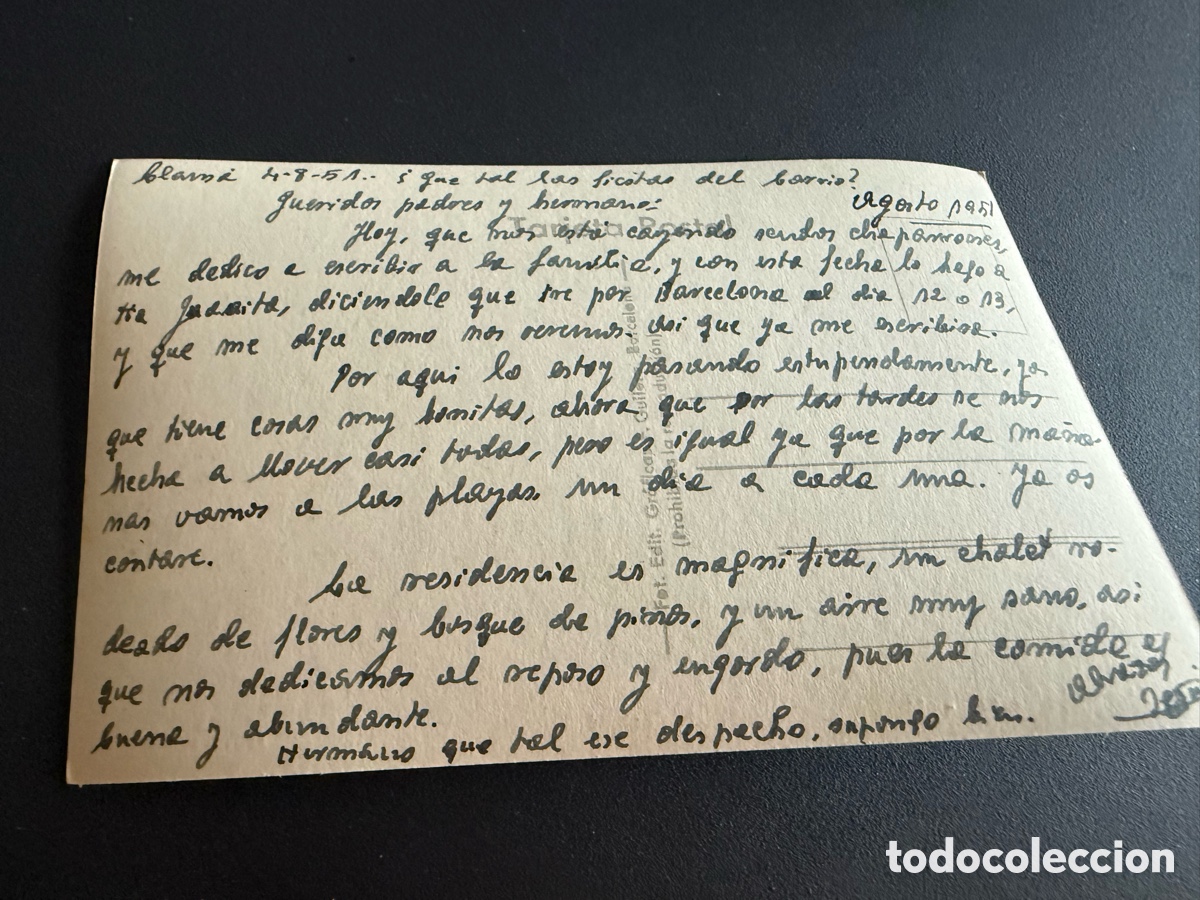 4-8-51.- ¿ que tal las fiestas del barrio?
Agosto 1951
Queridos padres y hermano:
Hoy, que nos está cayendo sendos chaparrones,
me dedico a escribir a la familia, y con esta fecha lo hago a
tia Juanita, diciendole que ire por Barcelona el dia 12 o 13,
y que me diga como nos veremos. asi que ya me escribira.
Por aqui lo estoy pasando estupendamente, ya
que tiene cosas muy bonitas, ahora que por las tardes se nos
hecha a llover casi todas, pero es igual ya que por la maña-
nas vamos a las playas, un dia a cada una. Ya os
contare.
La residencia es magnifica, un chalet ro-
deado de flores y bosque de pinos, y un aire muy sano, asi
que nos dedicamos al reposo y engordo, pues la comida es
buena y abundante.
Hermano que tal ese despacho, supongo bien.
Abrazos
Tarjeta Postal
Fot. Edit. Gráficas Barcelona
(Prohibida la reproducción)
todocoleccion